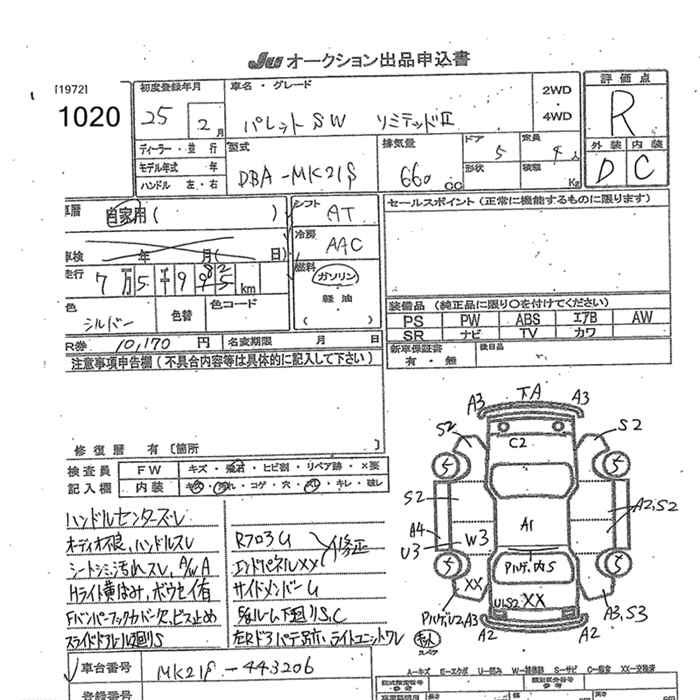 JU オークション出品申込書
[1972]
1020
初度登録年月
25 2月
車名・グレード
パレット SW リミテッドII
2WD
・
4WD
評価点
R
外装 内装
D C
ディーラー・並行
モデル年式 年
ハンドル 左・右
型式
DBA-MK21S
排気量
660 CC
ドア
5
形状
定員
4人
積載
Kg
車歴
自家用( )
シフト
AT
冷房
AAC
燃料
ガソリン
軽油
( )
車検 年 月( 日)
走行
7万5千9 km
色
シルバー
色替
色コード
R券 10,170 円
名変期限 月 日
セールスポイント(正常に機能するものに限ります)
装備品(純正品に限り○を付けてください)
PS PW ABS エアB AW
SR ナビ TV カワ
新車保証書
有・無
後日品
注意事項申告欄(不具合内容等は具体的に記入して下さい)
修復歴 有〔箇所
検査員
記入欄
FW キズ・飛石・ヒビ割・リペア跡・×要
内装 キズ・汚れ・コゲ・穴・スレ・キレ・破レ
ハンドルセンターズレ
オーディオ不良、ハンドルスレ
シートシミ、汚れスレ、A/W A
Hライト黄ばみ、ボウセイ有
Fバンパーフックカバー欠、ビス止め
スライドドアレール廻りS
Rフロアu
エンドパネルXX
修正
サイドメンバーu
S、C
左Rドア パテ
ライトユニットワレ
車台番号
MK21S-443206
登録番号
A3 下A A3
S2 S2
C2
S2
A1
A2,S2
A4
U3
W3
XX
Pハゲ、内S
U1S2
XX
Pハゲ、U2,A3
A2 A2
A3,S3
A-キズ E-エクボ U-凹み W-補修跡 S-サビ C-腐食 XX-交換済